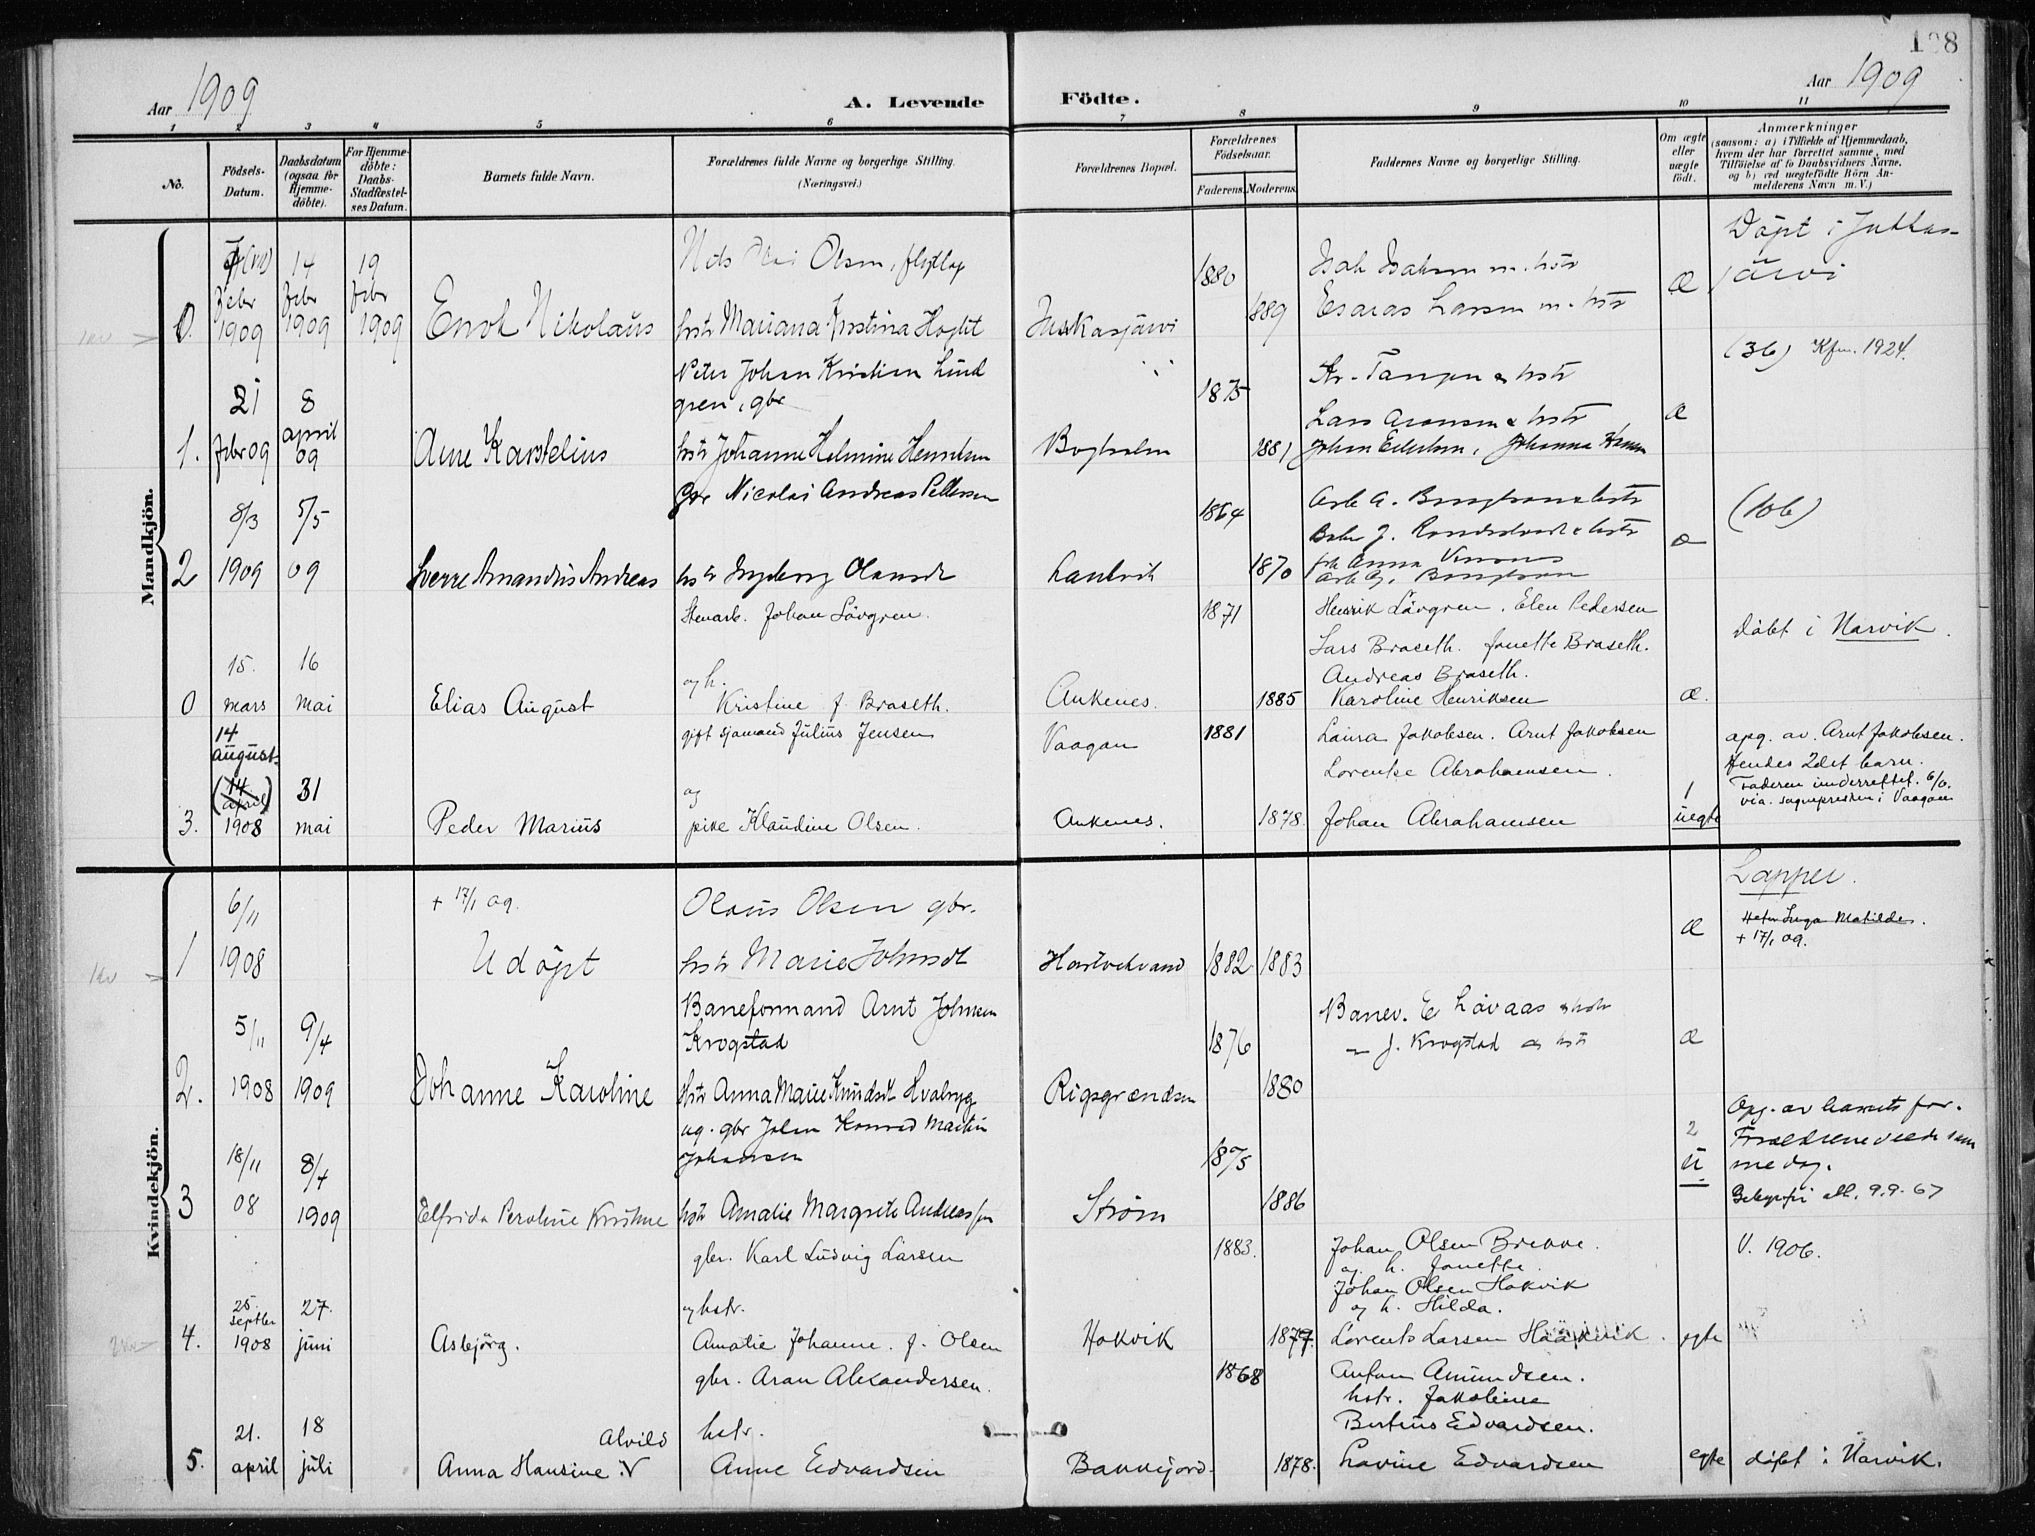 108
Aar 1909
A. Levende Födte.
Aar 1909
1 2 3 4 5 6 7 8 9 10 11
No.
Födsels-Datum.
Daabsdatum (ogsaa for Hjemme-döbte).
For Hjemme-döbte: Daabs-Stadfæstel-ses Datum.
Barnets fulde Navn.
Forældrenes fulde Navne og borgerlige Stilling.
(Næringsvei.)
Forældrenes Bopæl.
Forældrenes Födselsaar.
Faderens. Moderens.
Faddernes Navne og borgerlige Stilling.
Om ægte eller uægte födt.
Anmærkninger
(saasom: a) i Tilfælde af Hjemmedaab, hvem der har forrettet samme, med Tilföielse af to Daabsvidners Navne, og b) ved uægtefödte Börn An-melderens Navn m. V.)
Mandkjön.
0.
febr 1909
14 febr 1909
19 febr 1909
Enok Nikolaus
Olsen, flytlap
hstr Mariana Kristina
Juskasjärvi
1880
1889
Isak Isaksen m. hstr
Esaras Larsen m. hstr
Æ
Döpt i Jukkas-
järvi
1.
21 febr 09
8 april 09
Arne Karstelius
Peter Johan Kristian Lind
gren, gbr
hstr Johanne Helmine Henriksen
Bogholm
1875
1881
Kr. Tangen & hstr
Lars Aronsen & hstr
Æ
(36) Kfm. 1924.
2
8/3 1909
5/5 09
Sverre Amandus Andreas
Gbr Nicolai Andreas Pettersen
hstr Ingeborg Olausdt
Laukvik
1864
1870
Arb A. Bengtson & hstr
Æ
(106)
0
15. mars
16 mai
Elias August
Stenarb. Johan Lövgren.
og h.
Kristine f. Braseth.
Ankenes.
1871
1885
Henrik Lövgren. Elen Pedersen
Lars Braseth. Janette Braseth.
Andreas Braseth.
Karoline Henriksen
Æ.
döbt i Narvik.
3.
14 august
(14 april)
1908
31 mai
Peder Marius
gift sjømand Julius Jensen
og
pike Klaudine Olsen.
Vaagan
Ankenes.
1881
1878.
Laura Jakobsen. Arnt Jakobsen
Lorentze Abrahamsen.
Johan Abrahamsen
1
uegte
apg. av. Arnt Jakobsen.
Hendes 2det barn.
Faderen underrettet. 6/6.
via. sognepresten i Vaagan
Kvindekjön.
1
6/11 1908
+ 17/1 09.
Udöpt
Olaus Olsen gbr.
hstr Marie Johnsdt
Hartvikvand
1882 1883
Æ
Lapper.
Heter Inga Matilde.
+ 17/1 09.
2.
5/11 1908
9/4 1909
Johanne Karoline
Baneformand Arnt Johnsen
Krogstad
Hstr Anna Marie Knudsdt Hvalryg
Rigsgrændsen
1876
1880
Banev. E Løvaas & hstr
— J. Krogstad & hstr
Æ
3
18/11 08
8/4 1909
Elfrida Peroline Kristine
ug. gbr Johan Konrad Martin
Johansen
hstr Amalie Margrete Andreassen
Strøm
1875
1886
2
U.
Opg. av barnets far.
Forældrene viede sam
me dag.
9.9.67
4.
25. septbr 1908
27. juni
Asbjörg.
gbr. Karl Ludvig Larsen
og hstr.
Amalie Johanne. f. Olsen
Hokvik
1883.
1879.
Johan Olsen Brekke.
og h. Janette.
Johan Olsen Hokvik
og h. Hilda.
Lorents Larsen Haakvik.
egte
V. 1906.
5.
21. april
18 juli
Anna Hansine Alvild
gbr. Aron Alexandersen.
hstr.
Anne Edvardsen
Bakkejord.
1868
1878.
Anton Amundsen.
hstr. Jakobine
Bertius Edvardsen.
Lavine Edvardsen
egte
döbt i Narvik.